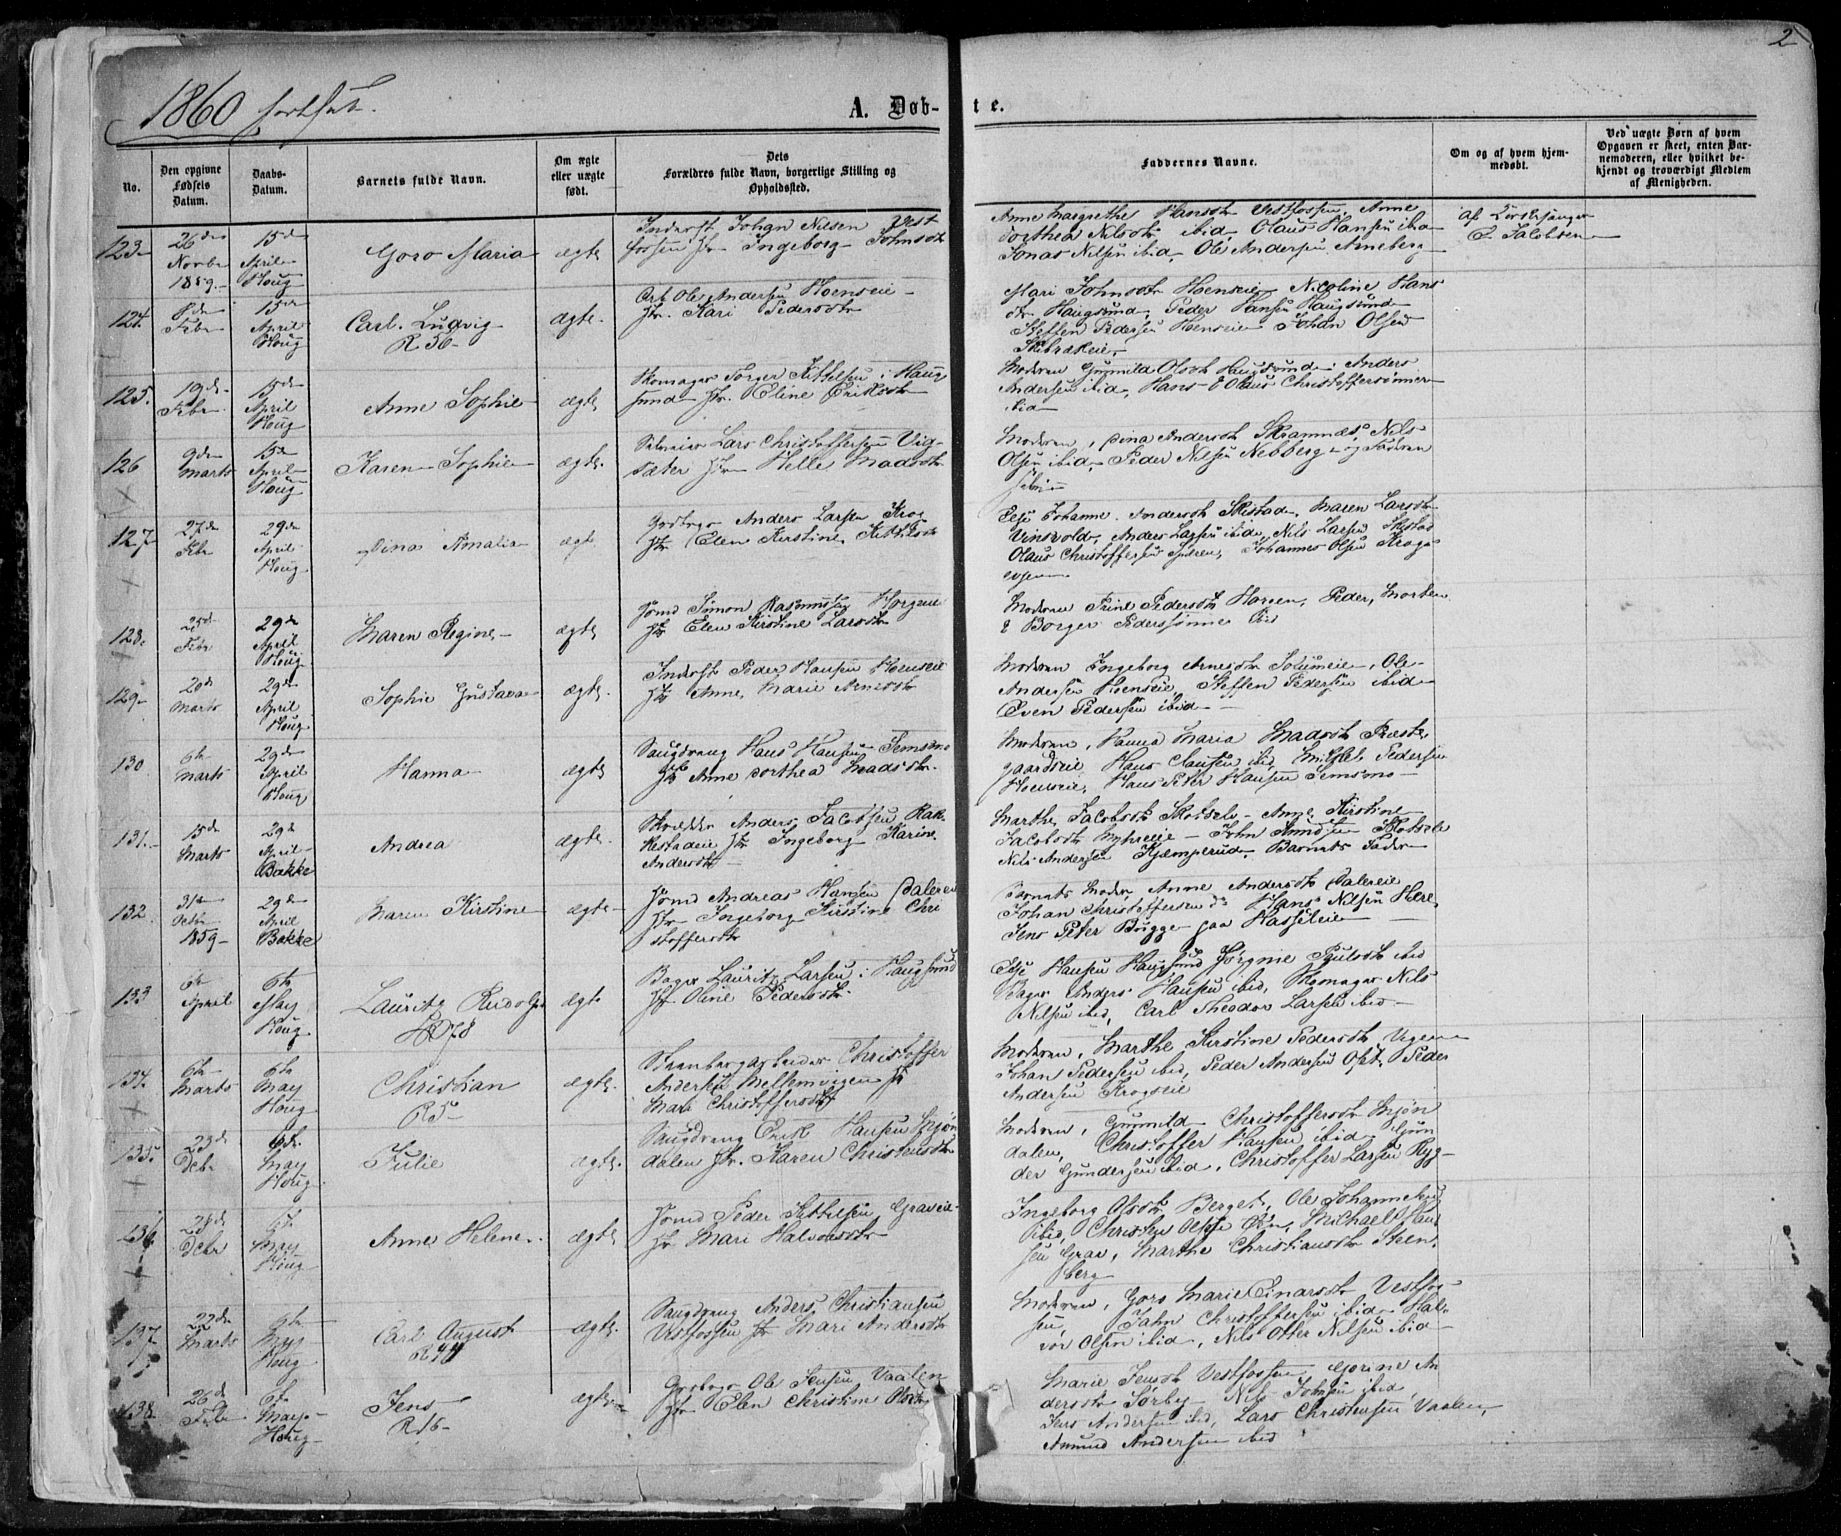 2
1860 fortsat.
A. Døb-
te.
No.
Den opgivne Fødsels Datum.
Daabs-Datum.
Barnets fulde Navn.
Om ægte eller uægte født.
Dets Forældres fulde Navn, borgerlige Stilling og Opholdssted.
Faddernes Navne.
Om og af hvem hjemmedøbt.
Ved uægte Børn af hvem Opgaven er skeet, enten Barnemoderen, eller hvilket bekjendt og troværdigt Medlem af Menigheden.
123 26de Novbr 1859 15de April Houg Goro Maria ægte
Inderst Johan Nilsen Vest
fossen Ingeborg Johnsdtr
Anne Margrethe Hansdtr Vestfossen, Anne
Dorthea Nilsdtr ibid Olaus Hansen ibid
Jonas Nilsen ibid, Ole Andersen Arneberg
Af
Jacobsen
124. 8de Febr 15de April Houg Carl Ludvig ægte
R 56
Ole Andersen Hoenseie
Kari Pedersdtr
Mari Johnsdtr Hoenseie Nicoline Hans
dtr Haugsund, Peder Hansen Haugsund
Steffen Pedersen Hoenseie Johan Olsen
125. 19de Febr 15de April Houg Anne Sophie ægte
Skomager Torger Kittelsen i Haug
sund Eline Eriksdtr
Moderen Gunnild Olsdtr Haugsund Anders
Andersen ibid, Hans & Olaus Christoffersønner
ibid
126 9de Marts 15de April Houg Karen Sophie ægte
Lars Christoffersen Vig
sæter Helle Madsdtr
Moderen, Dina Andersdtr Skramnæs, Nils
Olsen ibid, Peder Nilsen Nebberg og Faderen
selv
127 27de Febr 29de April Houg Dina Amalia ægte
Anders Larsen Krog
Elen Kirstine Kittilsdtr
Else Johanne Andersdtr Skistad, Maren Larsdtr
Vinsvold, Anders Larsen ibid, Nils Larsen Skistad
Olaus Christoffersen Johannes Olsen Krogs
128. 25de Febr 29de April Houg Maren Regine ægte
Simon Rasmussen Horgen
Elen Kirstine Larsdtr
Moderen Trine Pedersdtr Horgen, Peder, Morten
& Borger Pederssønner
129 20de Marts 29de April Houg Sophie Gustava ægte
Inderst Peder Hansen Hoenseie
Anne Marie Arnesdtr
Moderen Ingeborg Arnesdtr Solumeie, Ole
Andersen Hoenseie, Steffen Pedersen ibid
Even Pedersen ibid
130 6te Marts 29de April Houg Hanna ægte
Saugdreng Hans Hansen Semsmo
Anne Dorthea Madsdtr.
Moderen, Hanna Maria Madsdtr Præste
gaardseie Hans Clausen ibid, Michel Pedersen
Hoenseie, Hans Peter Hansen Semsmo
131. 15de Marts 29de April Bakke Andrea ægte
Skrædder Anders Jacobsen Rak
kestadeie Ingeborg Karine
Andersdtr
Marthe Jacobsdtr Skotsele Anne Kirstine
Jacobsdtr Myhreeie John Skotsele
Nils Andersen Kjæmperud, Barnets Fader
132. 31te 1859 29de April Bakke Maren Kirstine ægte
Andreas Hansen Daleren
Ingeborg Kirstine Chri
stoffersdtr
Barnets Moder, Anne Andersdtr Dalereie
Johan Christoffersen Hans Nilsen Here
Jens Peter Brygge paa Hasseleie
133 6te April 6te May Houg Lauritz Rudolf ægte
Bager Lauritz Larsen i Haugsund
Oline Pedersdtr
Else Hansen Haugsund Jørgine Paulsdtr ibid
Bager Anders Hansen ibid, Skomager Nils
Nilsen ibid, Carl Theodor Larsen ibid
134. 6te Marts 6te May Houg Christian ægte
R 5
Christoffer
Andersen Mellemvigen
Mari Christoffersdtr
Moderen, Marthe Kirstine Pedersdtr Vigen
Johan Pedersen ibid, Peder Andersen Peder
Andersen Krogseie
135. 23de Debr 6te May Houg Julie ægte
Saugdreng Erik Hansen Mjøn
dalen Karen Christensdtr
Moderen, Gunnild Christoffersdtr Mjøn
dalen, Christoffer Hansen ibid Gun
der Gundersen ibid, Christoffer Larsen Ryg
136 Debr 6te May Houg Anne Helene ægte
Peder Kittilsen Graveie
Mari Halvorsdtr
Ingeborg Olsdtr Berget, Ole Johannesen
ibid, Christen Olsen Michael Han
sen Grav, Marthe Christiansdtr Steen
berg
137 22de Marts 6te May Houg Carl August ægte
R 44
Saugdreng Anders Christiansen
Vestfossen Mari Andersdtr
Moderen, Goro Marie Einarsdtr Vestfos
sen, Jahn Christoffersen ibid Hal
vor Olsen ibid, Nils Otter Nilsen ibid
138 26de Febr 6te May Houg Jens ægte
R 16
Ole Jensen Vaalen
Elen Christine Olsdtr
Marie Jensdtr Vestfossen Gorine An
dersdtr Sørby Nils Johnsen ibid
Jens Andersen ibid, Lars Christensen Vaalen,
Amund Andersen ibid